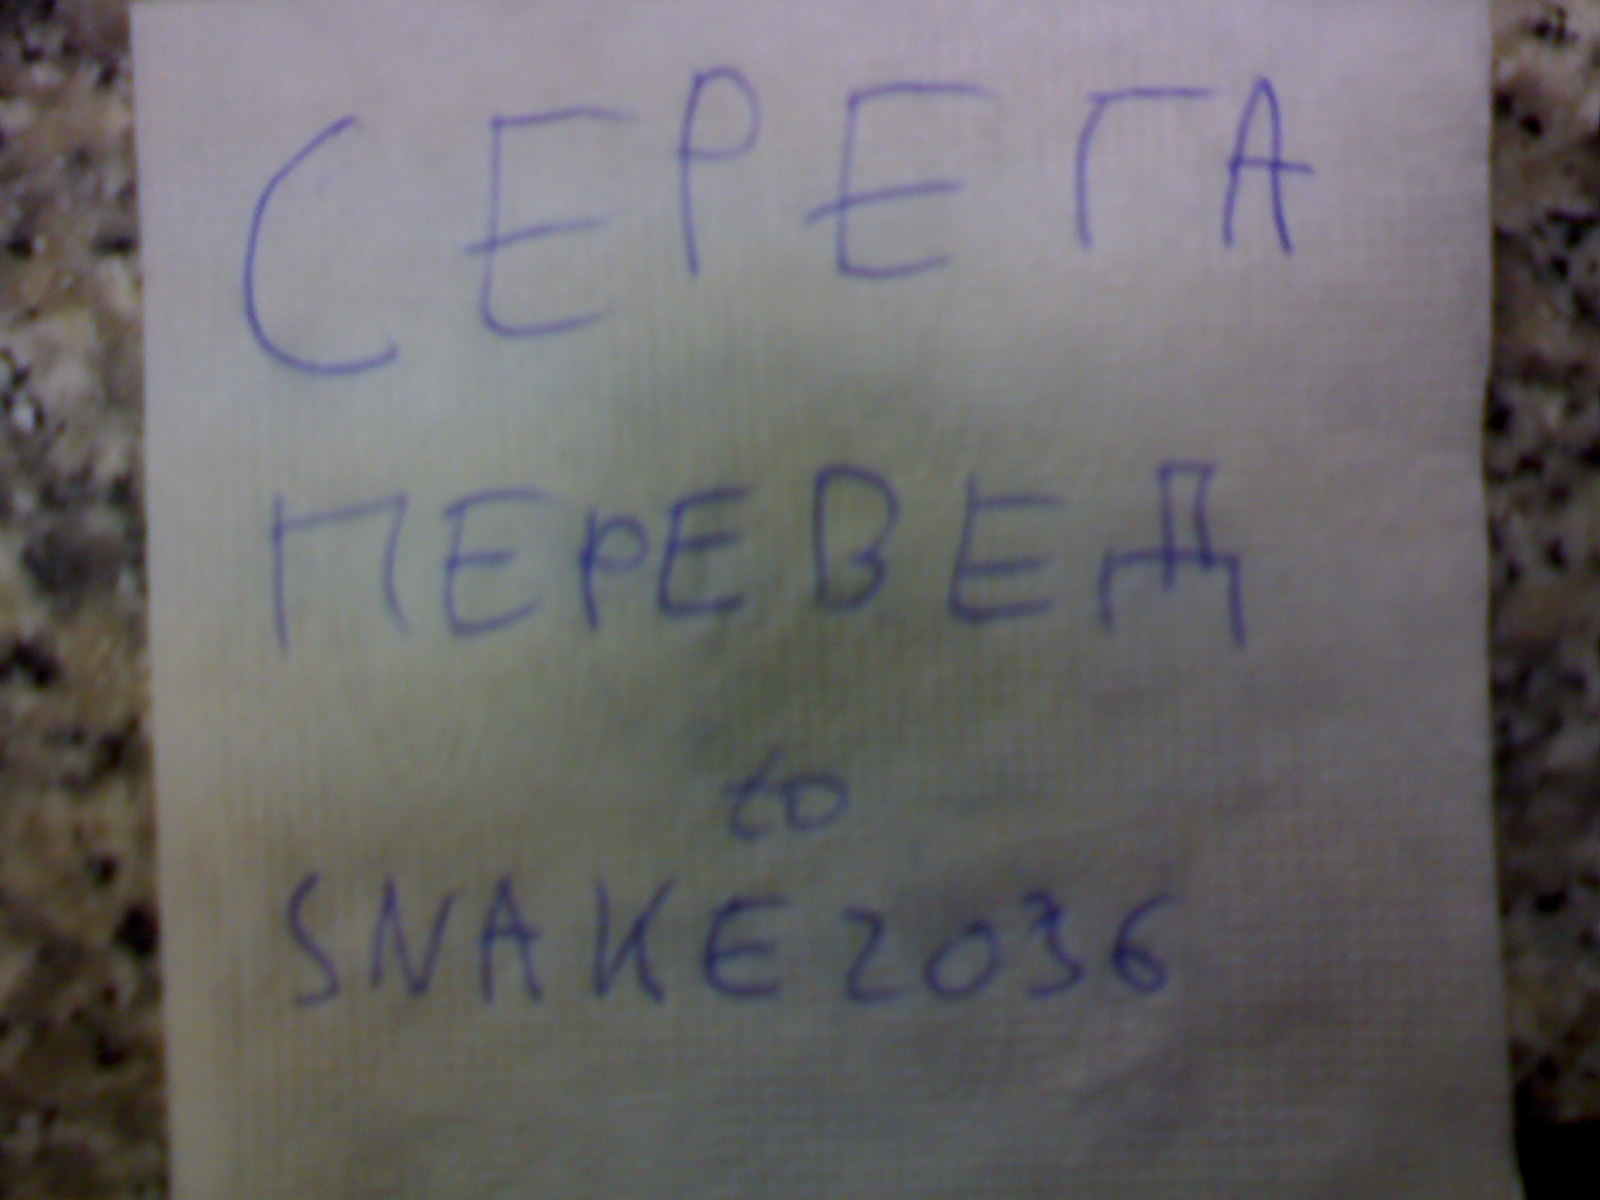 СЕРЕГА
ПЕРЕВЕД
to
SNAKE2036